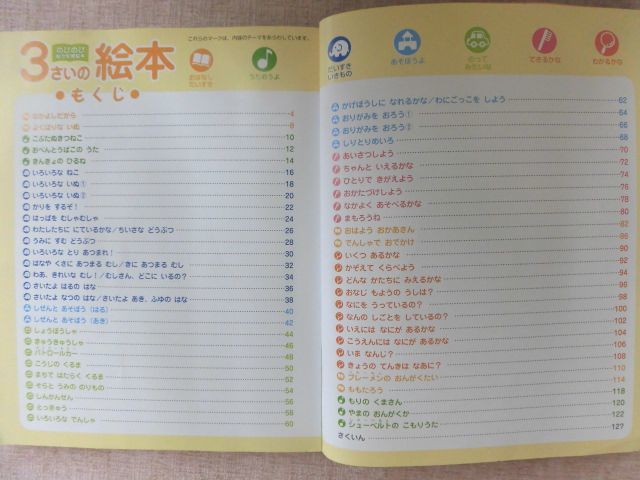 これらのマークは、内容のテーマをあらわしています。
のびのび
3さいの 絵本
●もくじ●
おはなし
だいすき
うたおうよ
だいすき
いきもの
あそぼうよ
のって
みたいな
できるかな
わかるかな
なかよしだから 4
よくばりな いぬ 8
こぶたぬきつねこ 10
おべんとうばこの うた 12
きんぎょの ひるね 14
いろいろな ねこ 16
いろいろな いぬ① 18
いろいろな いぬ② 20
かりを するぞ! 22
はっぱを むしゃむしゃ 24
わたしたちに にているかな/ちいさな どうぶつ 26
うみに すむ どうぶつ 28
いろいろな とり あつまれ! 30
はなや くさに あつまる むし/きに あつまる むし 32
わあ、きれいな むし!/むしさん、どこに いるの? 34
さいたよ はるの はな 36
さいたよ なつの はな/さいたよ あき、ふゆの はな 38
しぜんと あそぼう(はる) 40
しぜんと あそぼう(あき) 42
しょうぼうしゃ 44
きゅうきゅうしゃ 46
パトロールカー 48
こうじの くるま 50
まちで はたらく くるま 52
そらと うみの のりもの 54
しんかんせん 56
とっきゅう 58
いろいろな でんしゃ 60
かげぼうしに なれるかな/わにごっこを しよう 62
おりがみを おろう① 64
おりがみを おろう② 66
しりとりめいろ 68
あいさつしよう 70
ちゃんと いえるかな 72
ひとりで きがえよう 74
おかたづけしよう 76
なかよく あそべるかな 78
まもろうね 80
おはよう おかあさん 82
でんしゃで おでかけ 86
いくつ あるかな 90
かぞえて くらべよう 92
どんな かたちに みえるかな 94
おなじ もようの うしは? 96
なにを うっているの? 98
なんの しごとを しているの? 100
いえには なにが あるかな 102
こうえんには なにが あるかな 104
いま なんじ? 106
きょうの てんきは なあに? 108
ブレーメンの おんがくたい 110
ももたろう 114
もりの くまさん 118
やまの おんがくか 120
シューベルトの こもりうた 122
さくいん 127